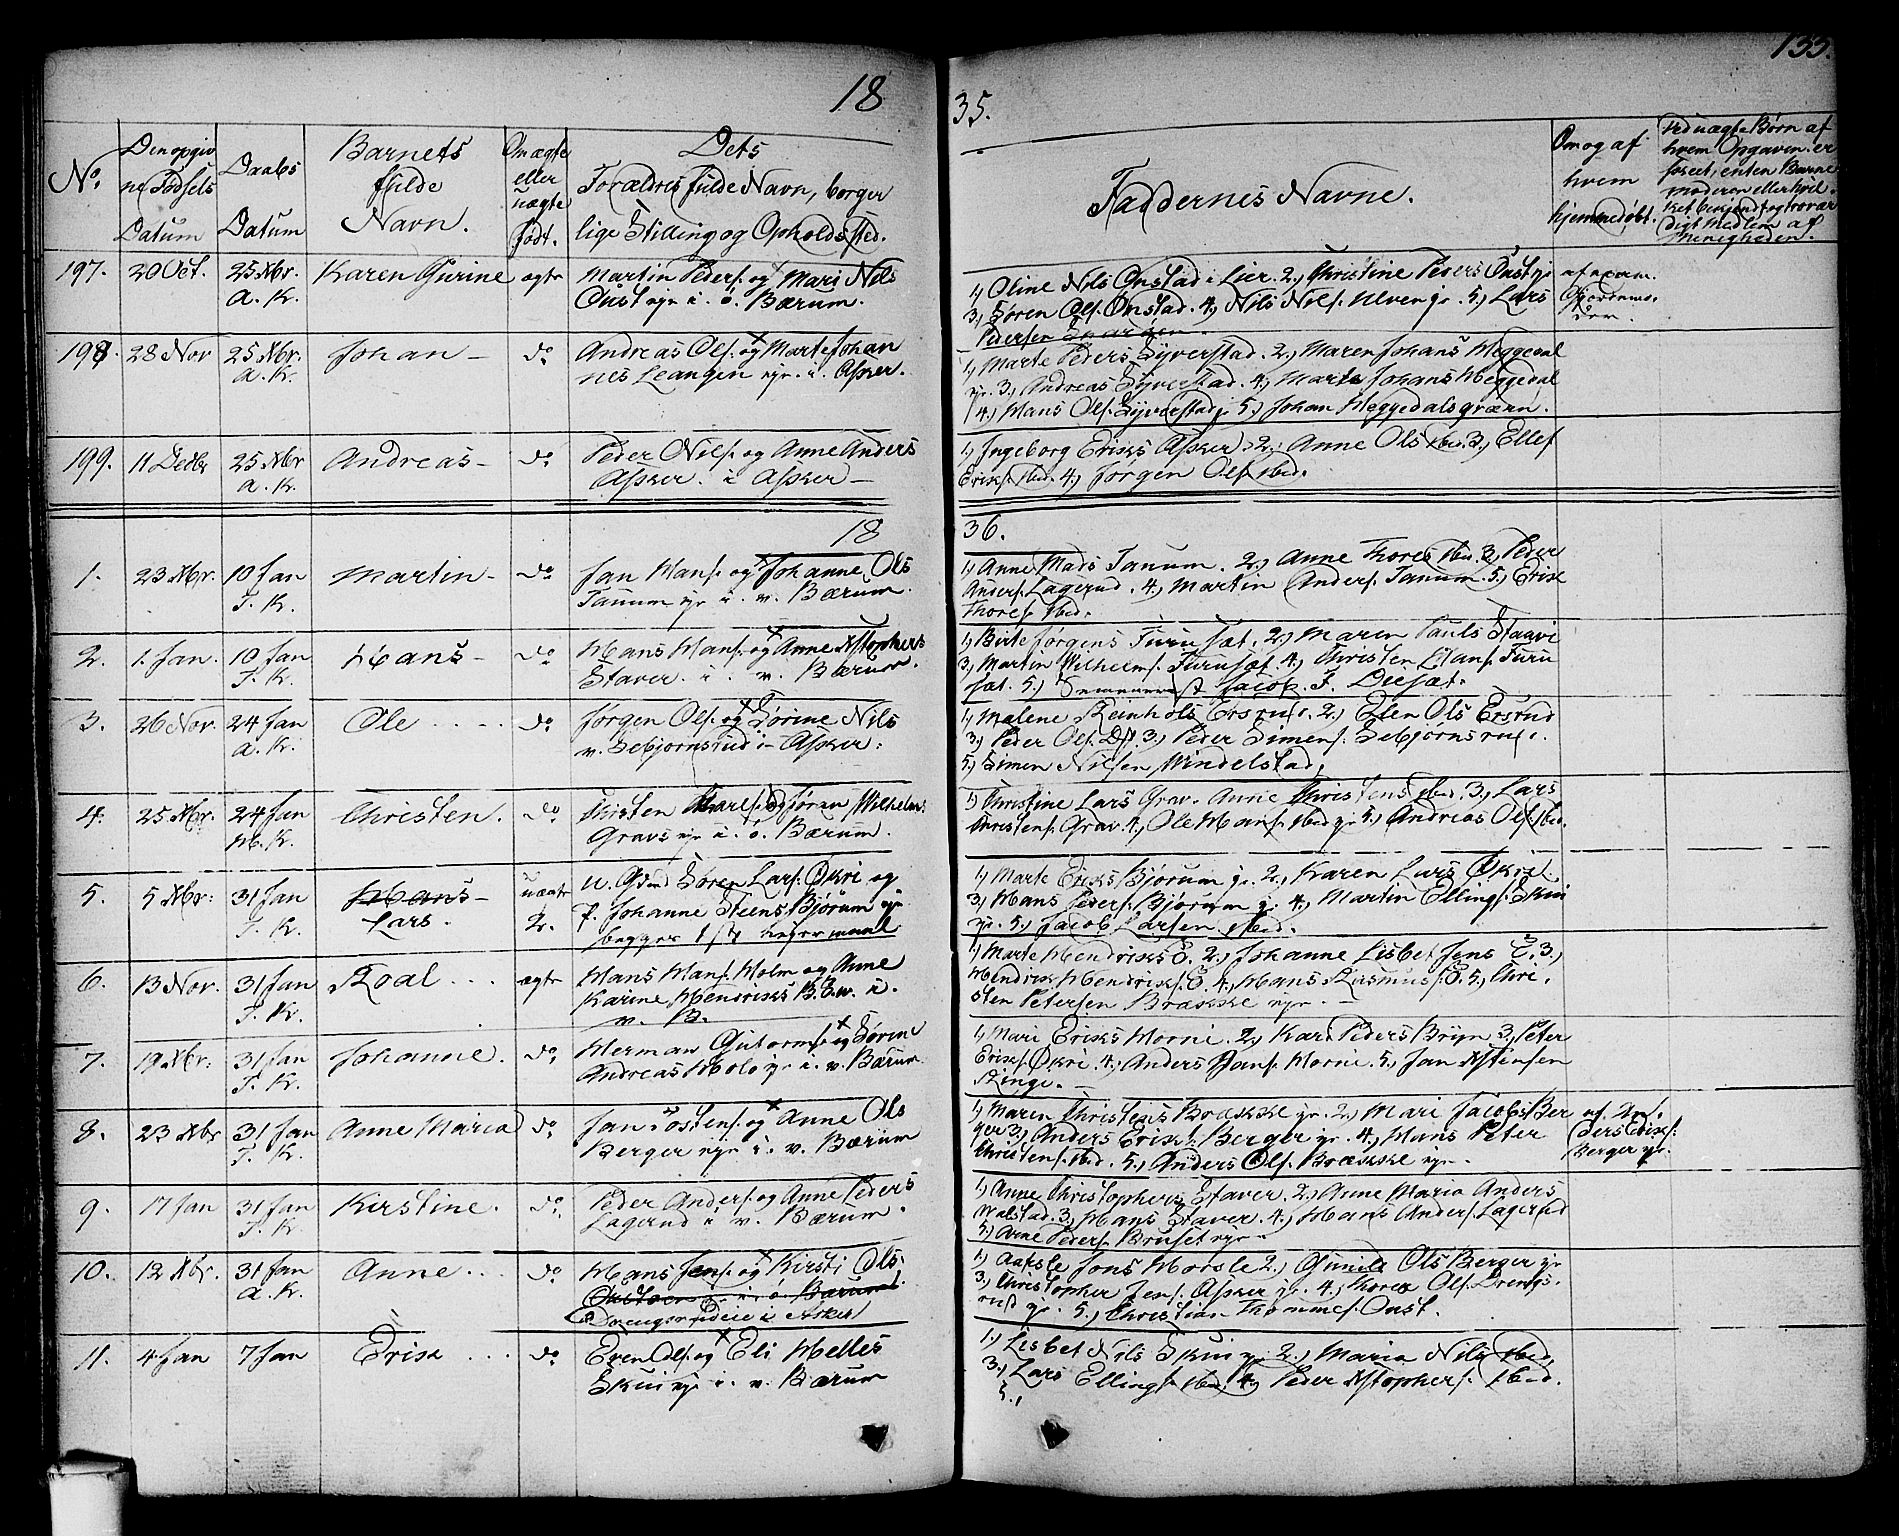 18
35.
133.
No.
Den opgiv
ne Fødsels
Datum
Daabs
Datum
Barnets
fulde
Navn.
Om ægte
eller
uægte
født.
Dets
Forældres fulde Navn, borger
lige Stilling og Opholdssted.
Faddernes Navne.
Om og af
hvem
hjemmedøbt.
Ved uægte Børn af
hvem Opgaven er
skeet, enten Barne
moderen eller hvil
ket bekjendt og trovær
digt Medlem af
Menigheden.
197. 20 Oct. 25 Xbr. Karen Gurine ægte Martin Peders. og Mari Nils
A. K. Onst eje i ö. Bærum.
1, Oline Nils Onstad i Lier. 2, Christine Peders Onst ej.
3, Søren Ols. Onstad. 4, Nils Nils. Ulven ej. 5, Lars
Pedersen
198. 28 Nov 25 Xbr. Johan - do Andreas Ols. og Marte Johan
A. K. nes Leangen eje i Asker.
1, Marte Peders Syverstad. 2, Maren Johans Heggedal
ej. 3, Andreas Syverstad. 4, Marte Johans Heggedal
4, Hans Ols. Syverstad ej. 5, Johan Heggedalsgræen.
199. 11 Decbr 25 Xbr Andreas - do Peder Nils. og Anne Anders
A. K. Asker. i Asker -
1, Ingeborg Eriks Asker 2, Anne Ols ibid. 3, Ellef
Eriks. ibid. 4, Jørgen Ols. ibid.
18
36.
1. 23 Xbr. 10 Jan Martin - do Jan Hans. og Johanne Ols
T. K. Tanum eje i v. Bærum.
1, Anne Mads Tanum. 2, Anne Thores ibid. 3, Peder
Anders. Lagerud. 4, Martin Anders. Tanum. 5, Erik
Thores. ibid.
2. 1. Jan. 10 Jan Hans - do Hans Hans. og Anne Xstophers
T. K. Staver i v. Bærum.
1, Birte Jørgens Furuset. 2, Maren Pauls Staavi
3, Martin Wilhelms. Furuset 4, Christen Hans. Furu
set. 5, Jacob
3. 26 Nov. 24 Jan Ole do Jørgen Ols. og Sørine Nils
A. K. v. Sebjørnsrud i Asker.
1, Malene Reinhols Ersrud. 2, Elen Ols Ersrud
3, Peder Ols. 3, Peder Simens. Sebjørnsrud.
5, Simen Nilsen Windelstad.
4. 25 Xbr. 24 Jan Christen. do og Jøran Wilhelm
H. K. Gravs eje i ö. Bærum.
1, Christine Lars Grav. Anne Christens ibid. 3, Lars
Christens. Grav. 4, Ole Hans. ibid ej 5, Andreas Ols. ibid.
5. 5 Xbr. 31 Jan Hans - uægte U. Søren Lars. Økri og
T. K. Lars. 2. P. Johanne Steens Bjørum eje
begges 1ste Leiermaal
1, Marte Eriks Bjørum ej. 2, Karen Lars Økri.
3, Hans Peders. Bjørum ej. 4, Martin Ellings. Skui
ej. 5, Jacob Larsen ibid.
6. 13 Nov. 31 Jan Roal ægte Hans Hans. Holm og Anne
T. K. Karine Hendriks B.E.v. i
v. B.
1, Marte Hendriks E. 2, Johanne Lisbet Jens E. 3,
Hendrik Hendriks. E. 4, Hans Rasmus. E. 5, Chri
sten Petersen Brække eje.
7. 19 Xbr. 31 Jan Johanne. do Herman Gutorms. og Sørine
T. K. Andreas Holo eje i v. Bærum.
1, Mari Eriks Horni. 2, Kari Peders Bryn 3, Peter
Eriks. Økri. 4, Anders Hans. Horni. 5, Jan Xstiensen
Ringi.
8. 23 Xbr 31 Jan Anne Maria do Jan Jostens. og Anne Ols
T. K. Berger eje i v. Bærum
1, Maren Christens Brække ej. 2, Mari Jacobs Ber
ger 3, Anders Eriks. Berger ej. 4, Hans Peter
Christens. ibid. 5, Anders Ols. Brække eje.
af An
ders Eriks.
Berger ej.
9. 17 Jan 31 Jan Kirstine. do Peder Anders. og Anne Peders
T. K. Lagerud i v. Bærum.
1, Anne Christophers Staver. 2, Anne Maria Anders
Walstad. 3, Hans Staver. 4, Hans Anders. Lagerud
5, Arne Peders. Bruset eje.
10. 12 Xbr. 31 Jan Anne do Hans Jens. og Kirsti Ols.
A. K. i ö Bærum
Drengsrudeie i Asker
1, Aaksle Jons Horsle 2, Gunild Ols Berger ej
3, Christopher Jens. Asker ej. 4, Thorer Ols. Drengs
rud ej. 5, Christian Thommes. Onst.
11. 4 Jan 7 Jan Erik do Even Ols. og Eli Helles
Skui eje i v. Bærum
1, Lisbet Nils Skui ej 2, Maria Nils ibid.
3, Lars Ellings. ibid. 4, Peder Xstophers. ibid.
5.,